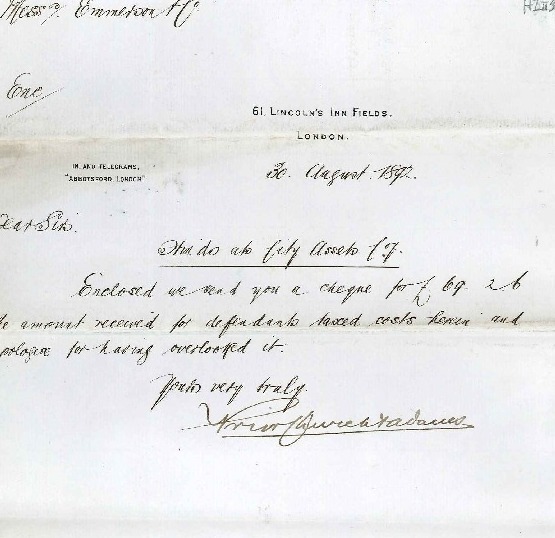 Messrs. Emmerson & Co
Enc
61, LINCOLN'S INN FIELDS.
LONDON.
INLAND TELEGRAMS,
"ABBOTSFORD LONDON"
30. August. 1892.
Dear Sirs.
ats City Assets Co.
Enclosed we send you a cheque for £ 69. 2 6
the amount received for defendants taxed costs herein and
apologise for having overlooked it.
Yours very truly.
Church & Adams